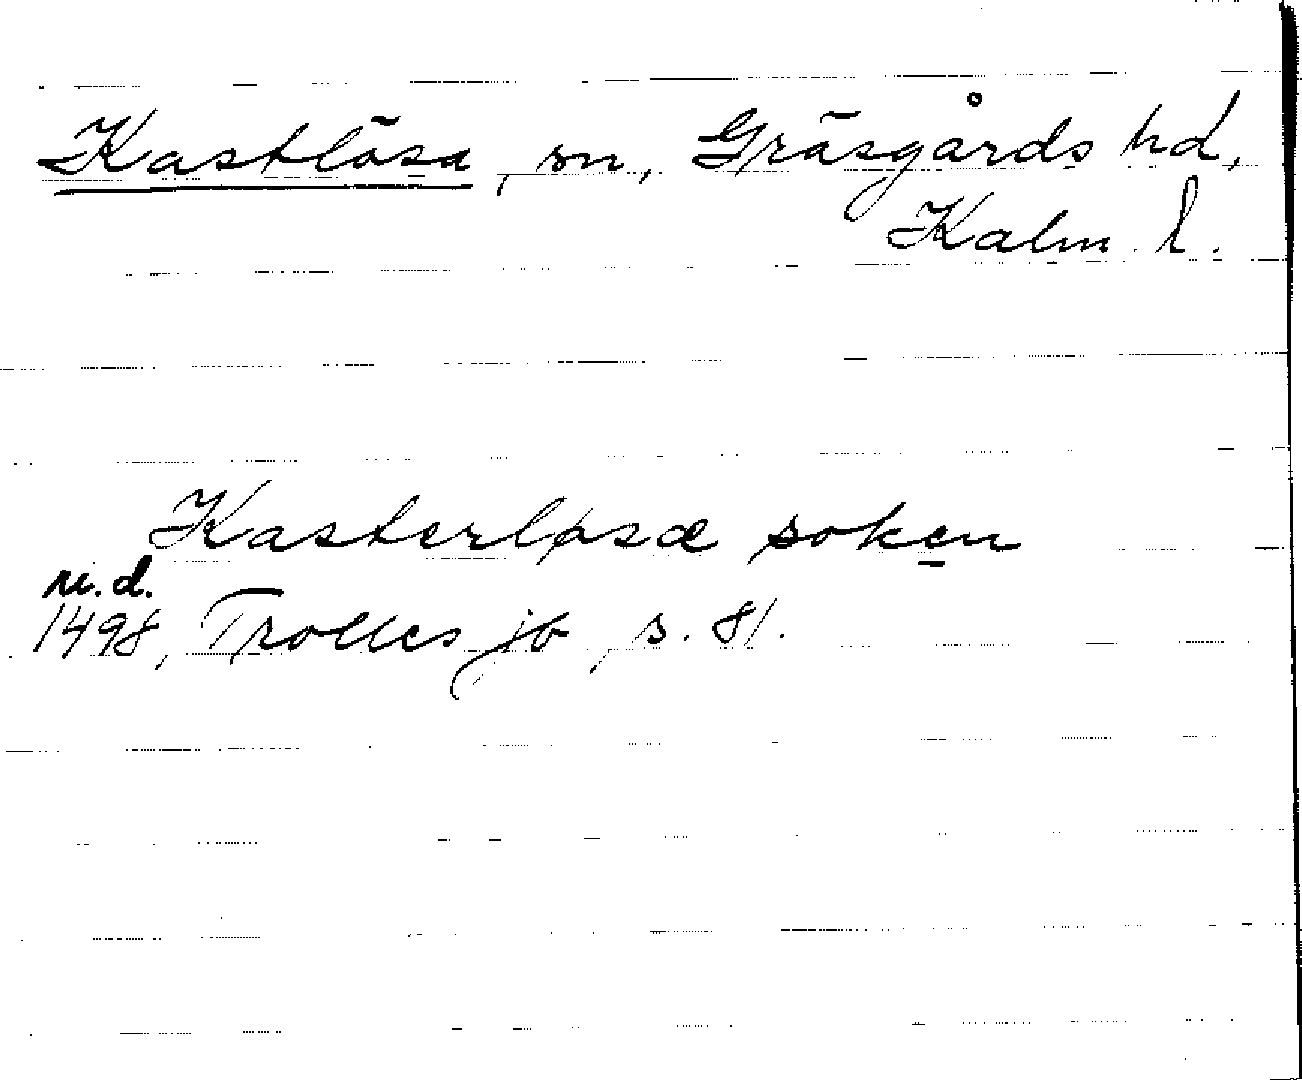 Kastlösa, sn, Gräsgårds hd,
Kalm. l.
Kasterløsæ soken
u.d.
1498, Trolles jb, s. 81.